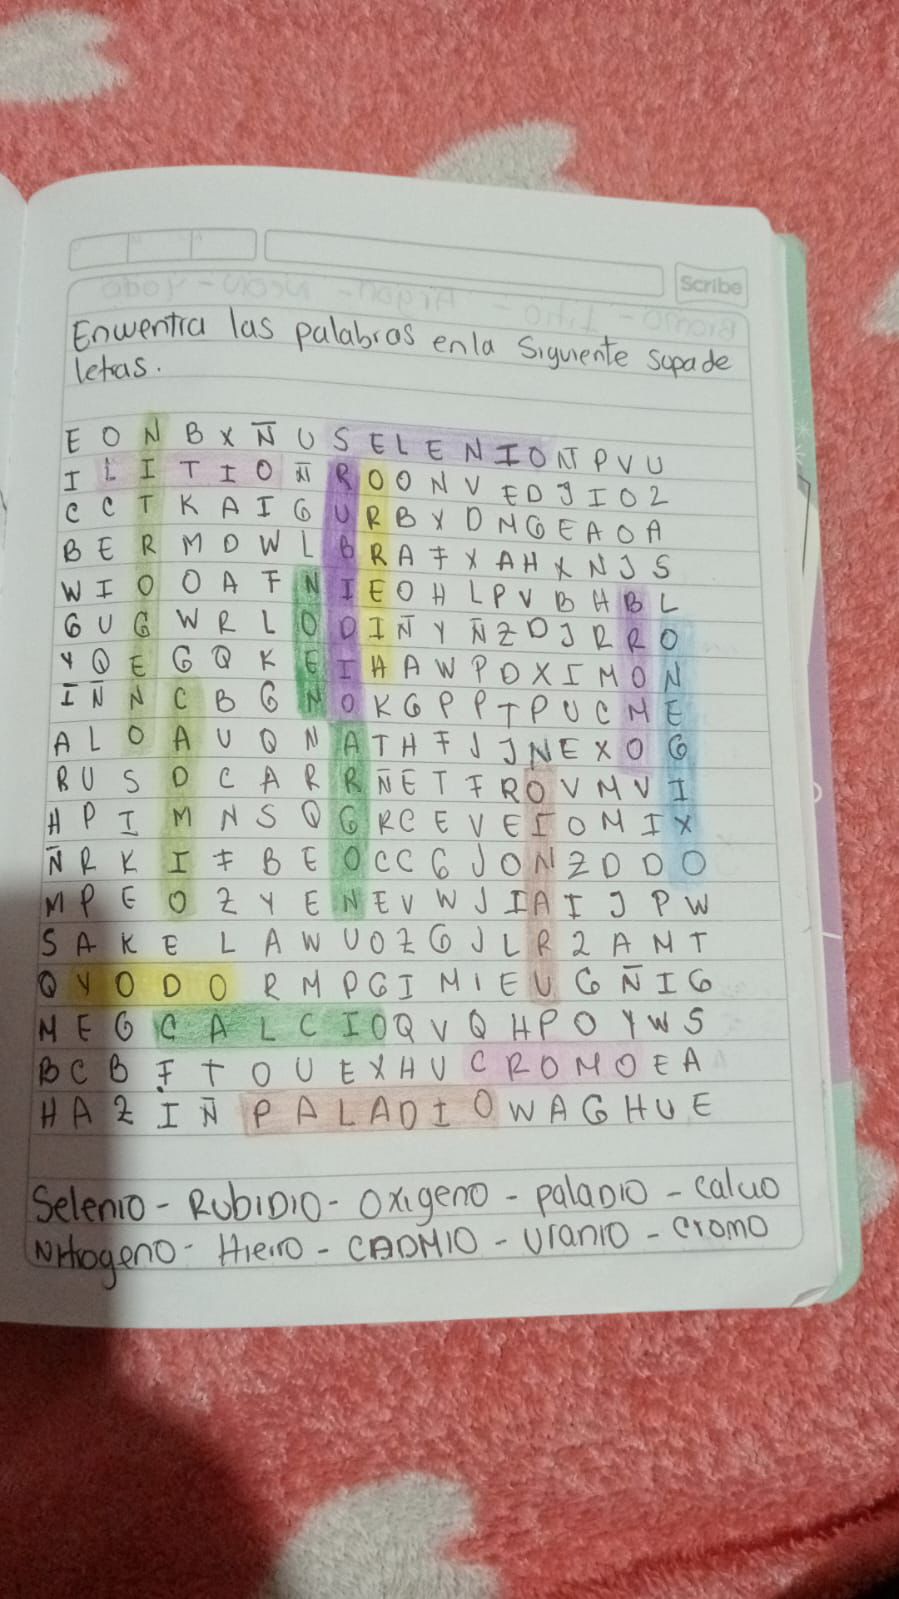 Scribe
Encuentra las palabras en la Siguiente sopa de
letras.
E O N B X Ñ U S E L E N I O N P V U
I L I T I O Ñ R O O N V E D J I O Z
C C T K A I G U R B Y D N G E A O A
B E R M D W L B R A F X A H X N J S
W I O O A F N I E O H L P V B H B L
G U G W R L O D I Ñ Y Ñ Z D J R R O
Y Q E G Q K E I H A W P D X I M O N
I Ñ N C B G N O K G P P T P U C M E
A L O A U Q N A T H F J J N E X O G
B U S D C A R R Ñ E T F R O V M V I
H P I M N S Q G R C E V E I O M I X
Ñ R K I F B E O C C G J O N Z D D O
M P E O Z Y E N E V W J I A I J P W
S A K E L A W U O Z G J L R Z A M T
Q Y O D O R M P G I M I E U G Ñ I G
M E G C A L C I O Q V Q H P O Y W S
B C B F T O U E X H U C R O M O E A
H A Z I Ñ P A L A D I O W A G H U E
Selenio - RUBIDIO - Oxigeno - palADIO - calcio
Nitrogeno - Hierro - CADMIO - Uranio - cromo